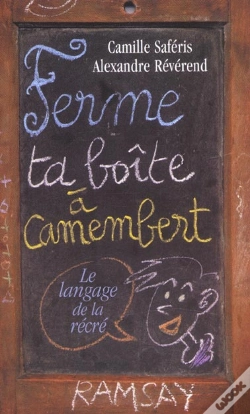 Camille Saféris
Alexandre Révérend
Ferme
ta boîte
à
camembert
Le
langage
de la
récré
RAMSAY
wook